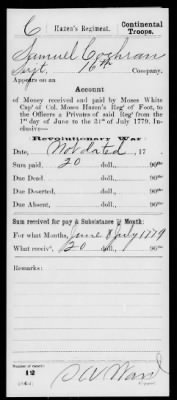 C Hazen's Regiment. Continental Troops.
Samuel Cochran
Sergt. 16th Company.
Appears on an
Account
of Money received and paid by Moses White
Capt of Col. Moses Hazen's Regt of Foot, to
the Officers & Privates of said Regt from the
1st day of June to the 31st of July 1779. In-
clusive—
Revolutionary War:
Date, Not dated, 17 .
Sum paid, 20 doll., 90ths
Due Dead, doll., 90ths
Due Deserted, doll., 90ths
Due Absent, doll., 90ths
Sum received for pay & Subsistance ⅌ Month:
For what Months, June & July 1779
What receivd, 20 doll., 90ths
Remarks:
Number of record:
12